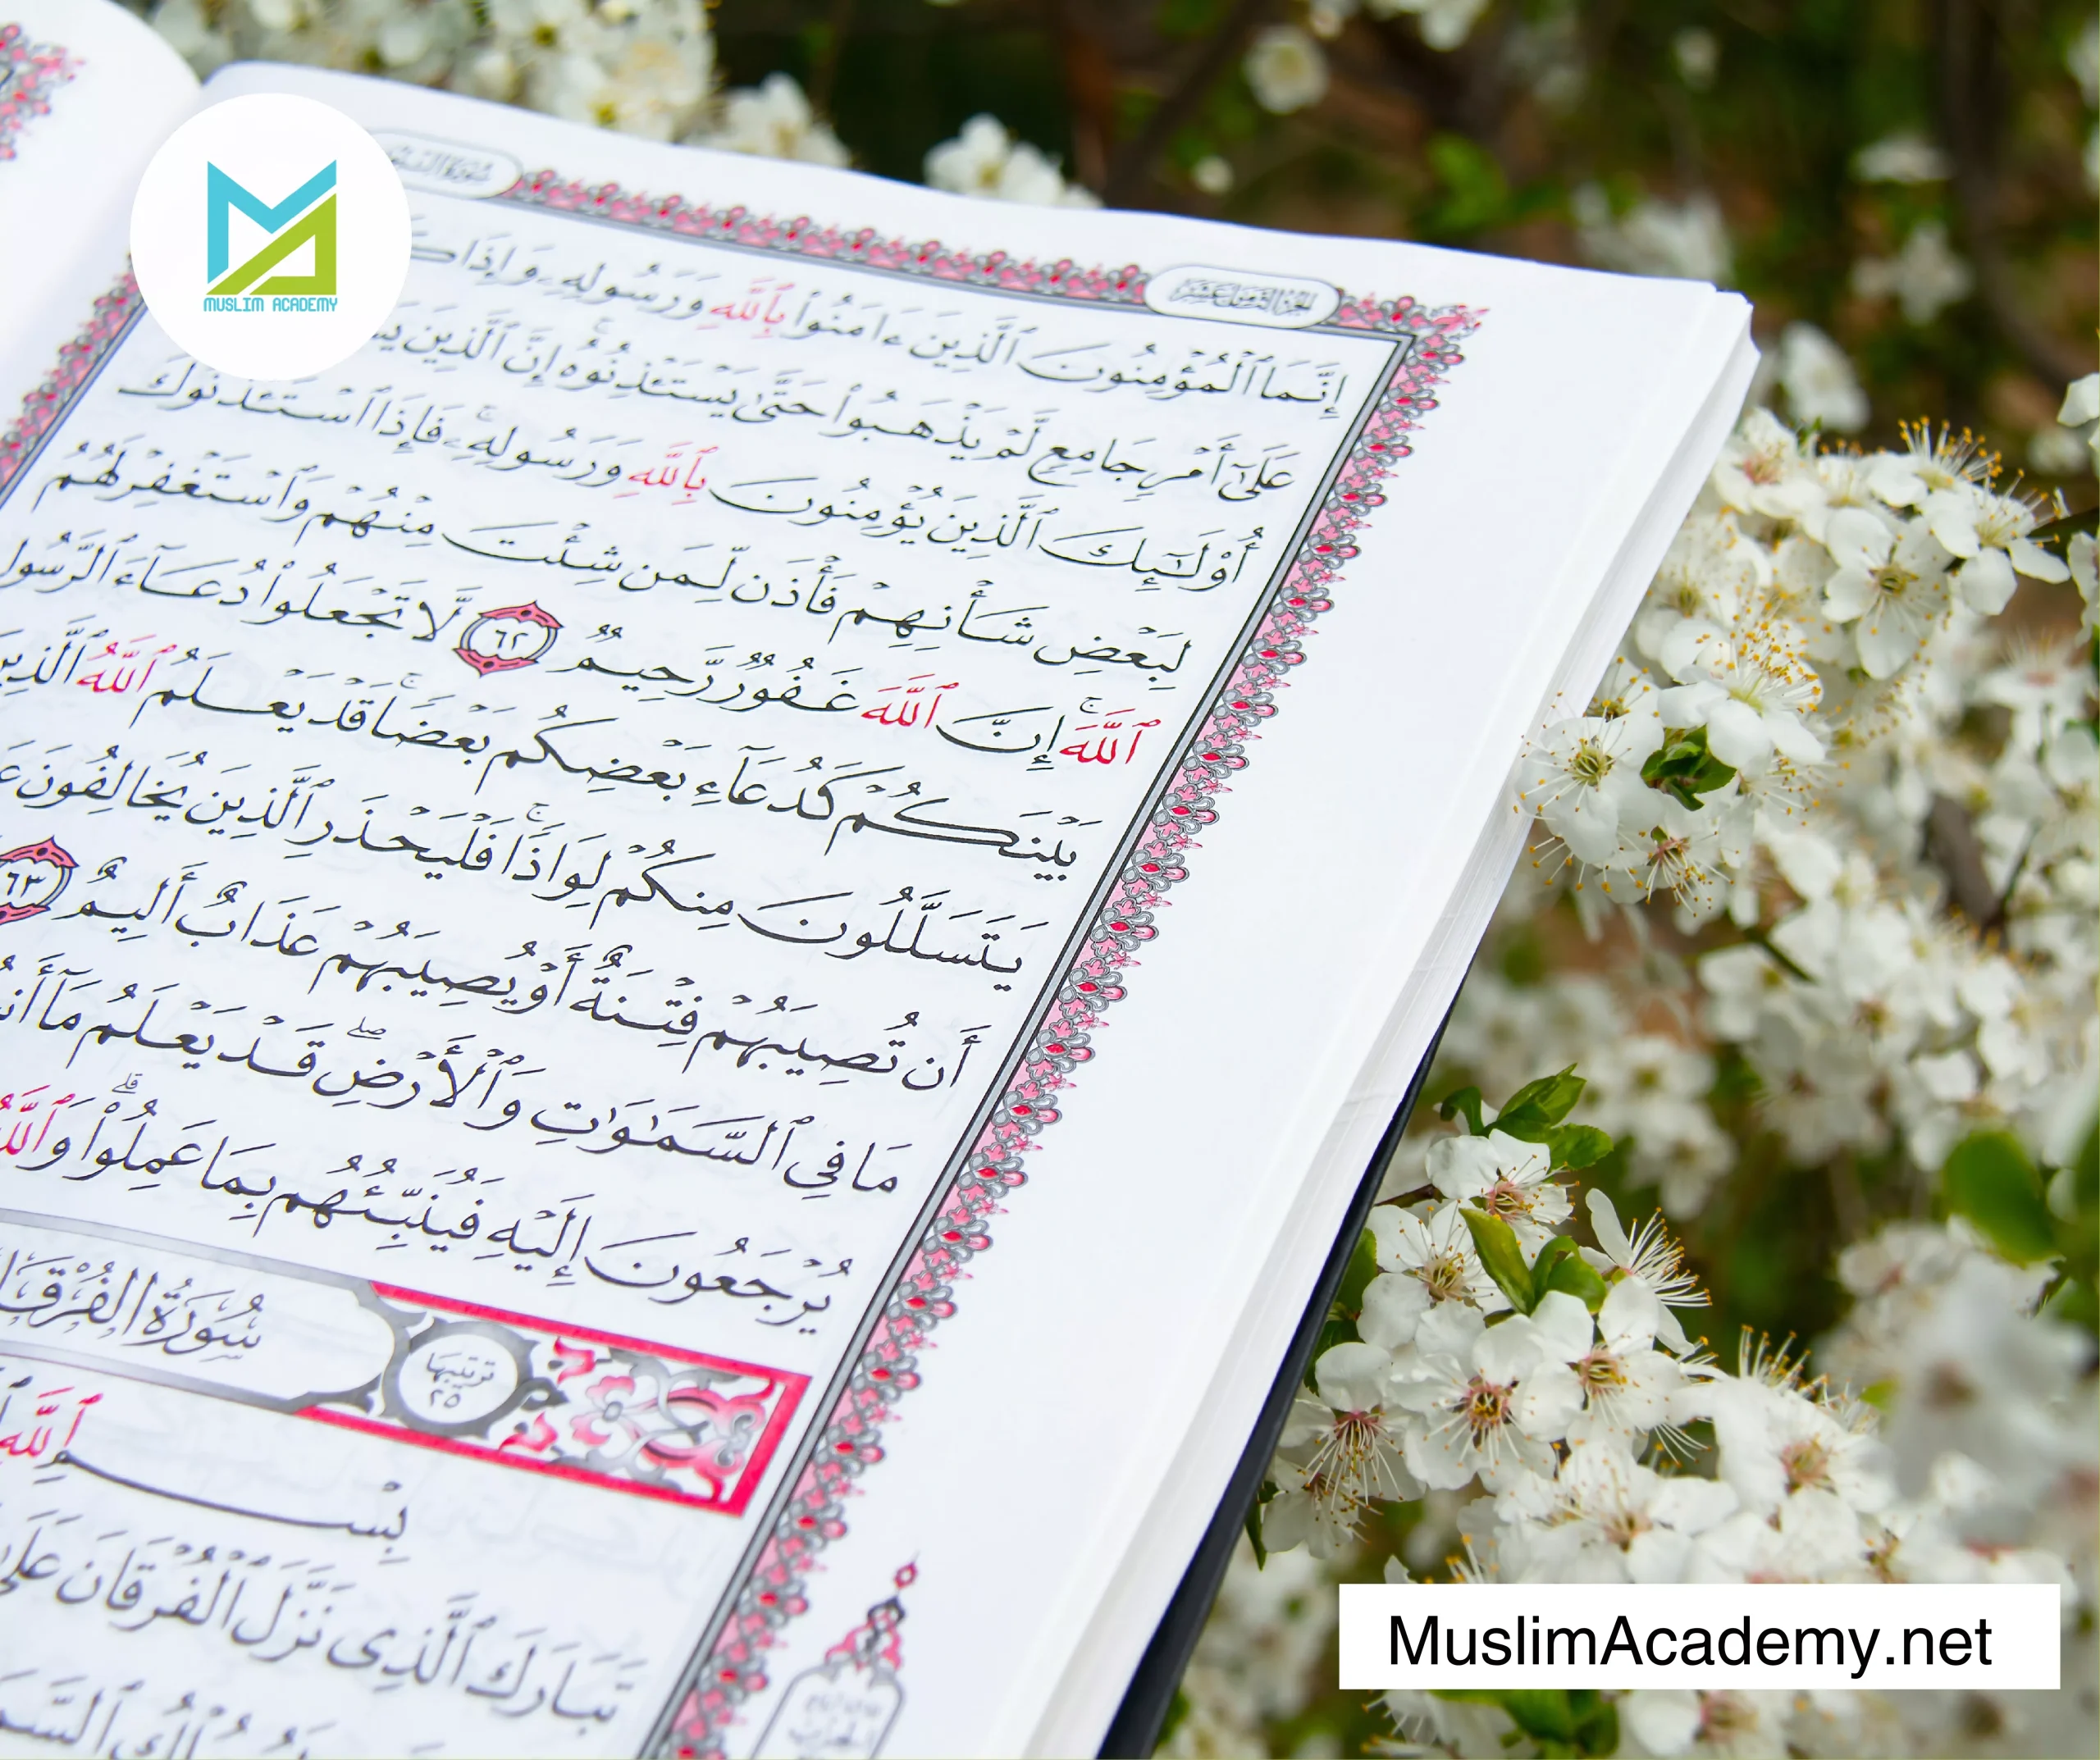 MUSLIM ACADEMY
الجزء الثامن عشر
إِنَّمَا ٱلْمُؤْمِنُونَ ٱلَّذِينَ ءَامَنُوا۟ بِٱللَّهِ وَرَسُولِهِۦ وَإِذَا
عَلَىٰٓ أَمْرٍ جَامِعٍ لَّمْ يَذْهَبُوا۟ حَتَّىٰ يَسْتَـْٔذِنُوهُ ۚ إِنَّ ٱلَّذِينَ
أُو۟لَـٰٓئِكَ ٱلَّذِينَ يُؤْمِنُونَ بِٱللَّهِ وَرَسُولِهِۦ ۚ فَإِذَا ٱسْتَـْٔذَنُوكَ
لِبَعْضِ شَأْنِهِمْ فَأْذَن لِّمَن شِئْتَ مِنْهُمْ وَٱسْتَغْفِرْ لَهُمُ
ٱللَّهَ ۚ إِنَّ ٱللَّهَ غَفُورٌ رَّحِيمٌ ٦٢ لَّا تَجْعَلُوا۟ دُعَآءَ ٱلرَّسُولِ
بَيْنَكُمْ كَدُعَآءِ بَعْضِكُم بَعْضًا ۚ قَدْ يَعْلَمُ ٱللَّهُ ٱلَّذِينَ
يَتَسَلَّلُونَ مِنكُمْ لِوَاذًا ۚ فَلْيَحْذَرِ ٱلَّذِينَ يُخَالِفُونَ
أَن تُصِيبَهُمْ فِتْنَةٌ أَوْ يُصِيبَهُمْ عَذَابٌ أَلِيمٌ ٦٣
مَا فِى ٱلسَّمَـٰوَٰتِ وَٱلْأَرْضِ ۖ قَدْ يَعْلَمُ مَآ
يُرْجَعُونَ إِلَيْهِ فَيُنَبِّئُهُم بِمَا عَمِلُوا۟ ۗ وَٱللَّهُ
سُورَةُ الْفُرْقَان
ترتيبها ٢٥
بِسْمِ ٱللَّهِ
تَبَارَكَ ٱلَّذِى نَزَّلَ ٱلْفُرْقَانَ عَلَىٰ
MuslimAcademy.net